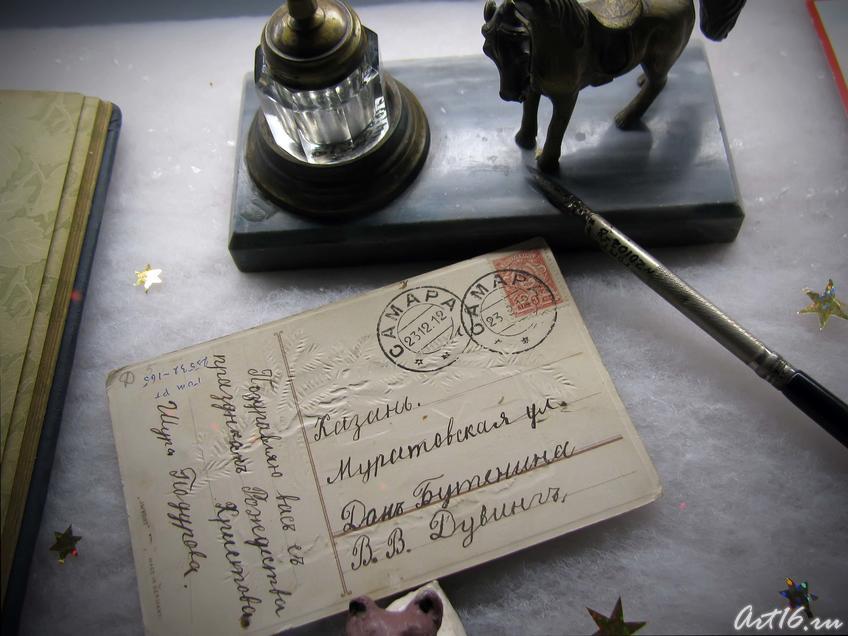 САМАРА
23.12.12
САМАРА
23
Казань.
Муратовская ул.
Домъ Бутенина
В. В. Дувингъ,
Поздравляю васъ съ
праздникомъ Рождества
Христова.
Шура Подурова.
Art16.ru